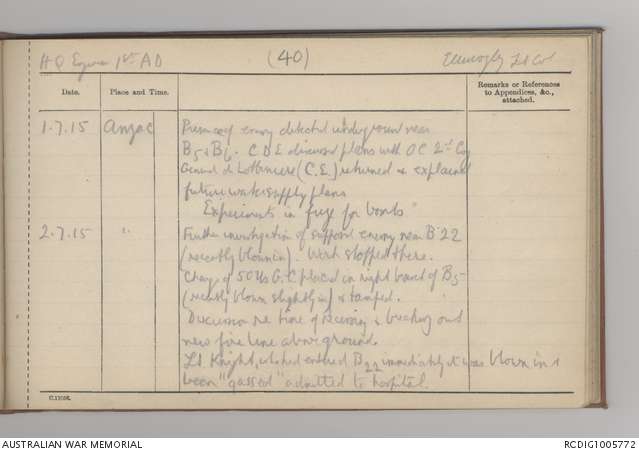 HQ Engrs 1st AD (40) Lt Col
Date. Place and Time. Remarks or References to Appendices, &c., attached.
1.7.15 Anzac Presence of enemy detected underground near
B5 & B6. C.D.E discussed plans with OC 2nd Coy
General de Lotbiniere (C.E.) returned & explained
future work & supply plans
Experiments in fuze for bombs
2.7.15 " Further investigation of supposed enemy near B 22
(recently blown in). Work stopped there.
Charge of 50 lbs G.C placed in right branch of B5
(recently blown slightly in) & tamped.
Discussion re time of & breaking out
new fire line above ground.
Lt Knight, entered B22 immediately it was blown in &
been "gassed" admitted to hospital.
C.13098.
AUSTRALIAN WAR MEMORIAL
RCDIG1005772